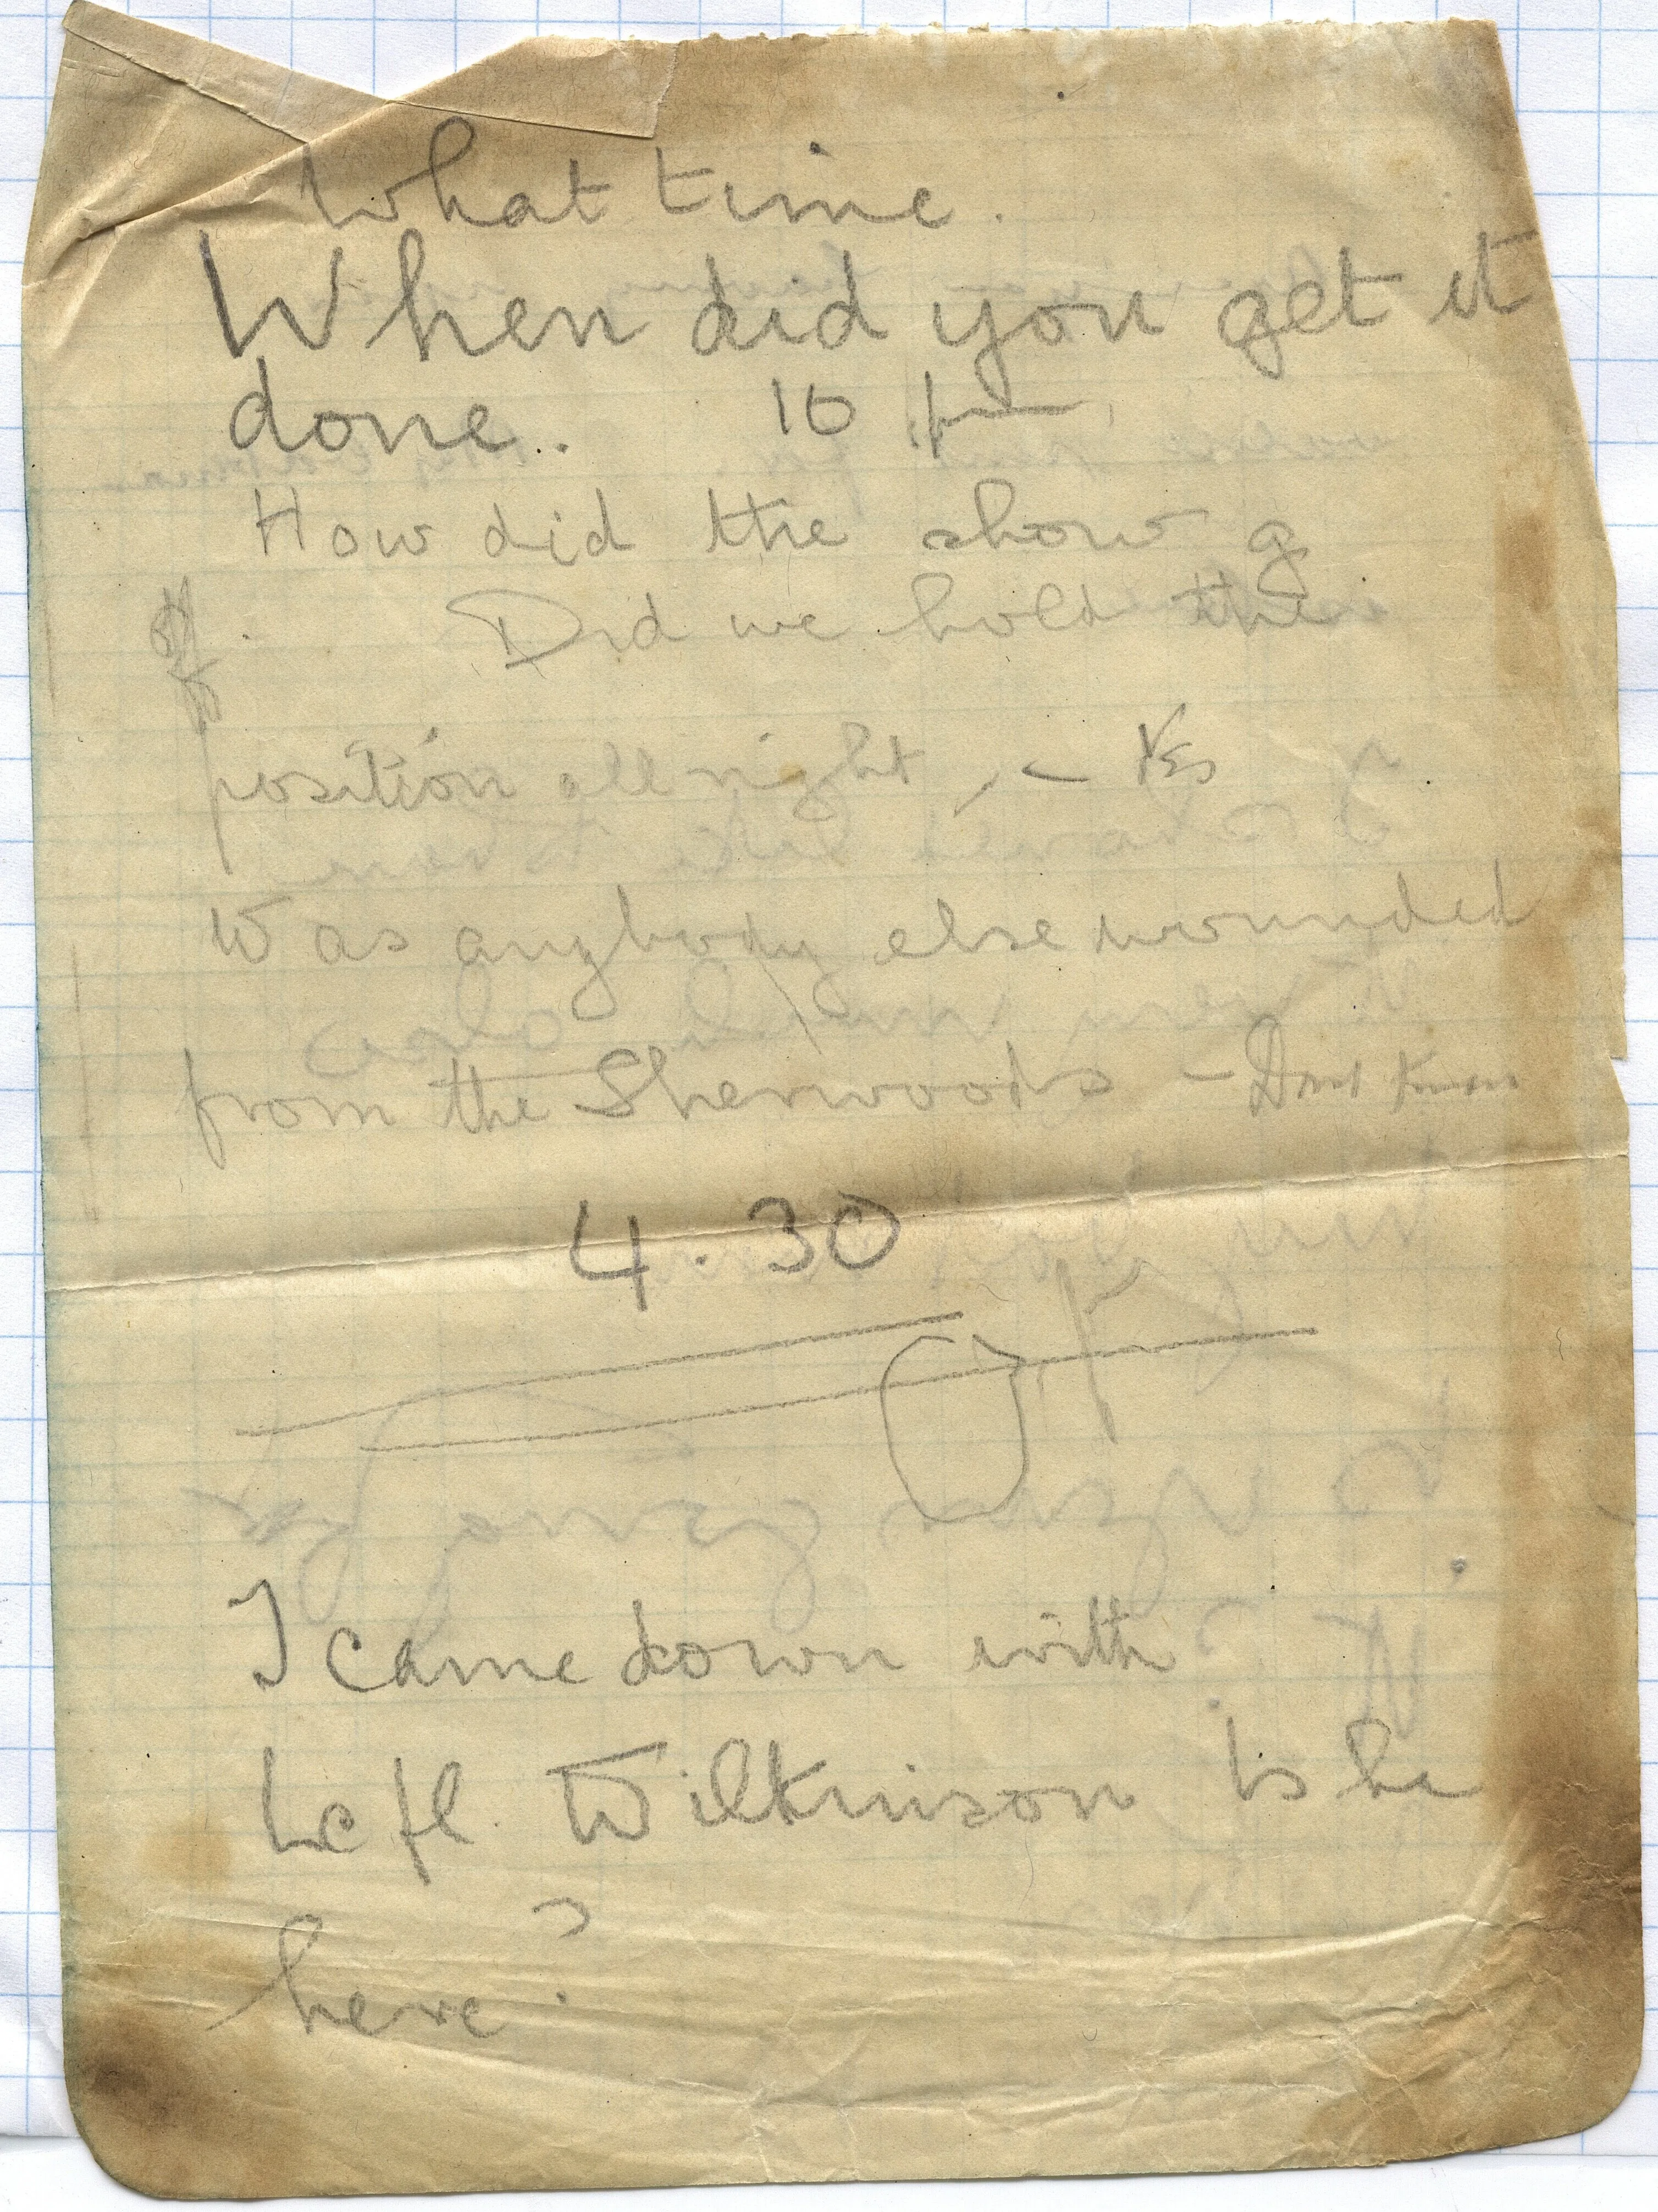 What time.
When did you get it
done.. 10 pm
How did the show g
off. Did we hold the
position all right, - Yes
Was anybody else wounded
from the Sherwoods - Dont know
4.30
I came down with
Wilkinson Is he
here?